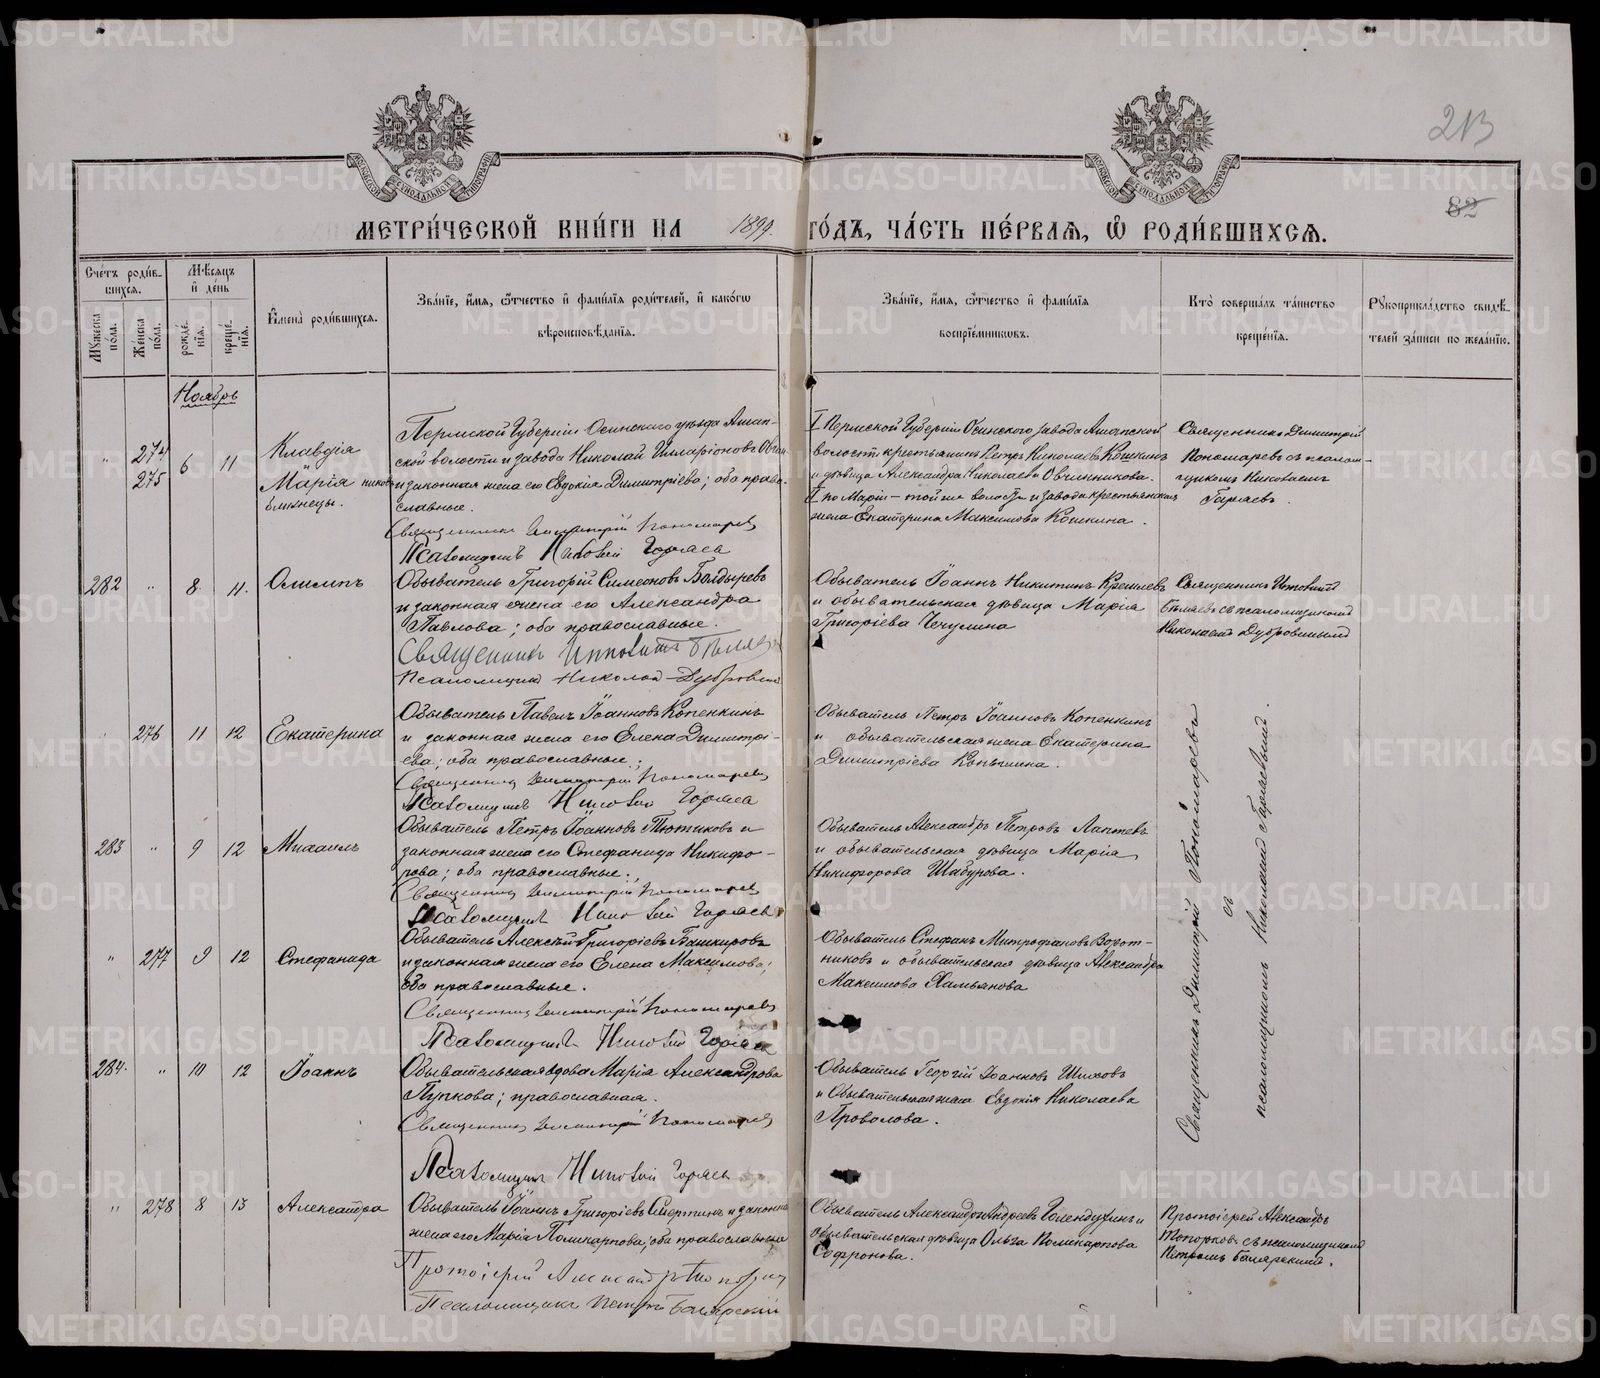 213
82
МЕТРИ́ЧЕСКОЙ КНИ́ГИ НА 1899 ГО́ДЪ, ЧА́СТЬ ПЕ́РВАЯ, Ѽ РОДИ́ВШИХСЯ.
Сче́тъ роди́в-
шихся.
Мѣ́сяцъ
и҆ де́нь
Му́жеска по́ла.
Же́нска по́ла.
рожде́нїя.
креще́нїя.
И҆мена̀ роди́вшихся.
Зва́нїе, и҆́мя, ѻ҆́тчество и҆ фами́лїя роди́телей, и҆ како́гѡ
вѣроисповѣ́данїя.
Зва́нїе, и҆́мя, ѻ҆́тчество и҆ фами́лїя
воспрїе́мникѡвъ.
Кто̀ соверша́лъ та́инство
креще́нїя.
Рꙋкоприкла́дство свидѣ́-
телей за́писи по жела́нїю.
Ноябрь
" 274 275 6 11
Клавдія
Марія
близнецы.
Пермской Губерніи Осинскаго уѣзда Ашап-
ской волости и завода Николай Илларіоновъ
и законная жена его Евдокія Димитріева; оба право-
славные.
Священникъ Димитрій Пономаревъ
Псаломщикъ Николай Гаряевъ
I Пермской Губерніи Осинского завода Ашапской
волости крестьянинъ Петръ Николаевъ Кошкинъ
и дѣвица Александра Николаева Овчинникова.
II по Маріи – той же волости и завода крестьянская
жена Екатерина Максимова Кошкина.
Священникъ Димитрій
Пономаревъ съ псалом-
щикомъ Николаемъ
Гаряевъ
282 " 8 11. Олимпъ
Обыватель Григорій Симеоновъ Болдыревъ
и законная жена его Александра
Павлова; оба православные.
Священникъ Ипполитъ Бѣляевъ
Псаломщикъ Николай Дубровскій
Обыватель Іоаннъ Никитинъ
и обывательская дѣвица Марія
Григоріева Чечулина
Священникъ Ипполитъ
Бѣляевъ съ псаломщикомъ
Николаемъ Дубровскимъ
" 276 11 12 Екатерина
Обыватель Павелъ Іоанновъ Копенкинъ
и законная жена его Елена Димитрі-
ева; оба православные.
Священникъ Димитрій Пономаревъ
Псаломщикъ Николай Гаряевъ
Обыватель Петръ Іоанновъ Копенкинъ
и обывательская жена Екатерина
Димитріева
283 " 9 12 Михаилъ
Обыватель Петръ Іоанновъ Тютиковъ и
законная жена его Стефанида Никифо-
рова; оба православные.
Священникъ Димитрій Пономаревъ
Псаломщикъ Николай Гаряевъ
Обыватель Александръ Петровъ Лаптевъ
и обывательская дѣвица Марія
Никифорова Шабурова.
" 277 9 12 Стефанида
Обыватель Алексѣй Григоріевъ Башкировъ
и законная жена его Елена Максимова;
оба православные.
Священникъ Димитрій Пономаревъ
Псаломщикъ Николай Гаряевъ
Обыватель Стефанъ Митрофановъ Ворот-
никовъ и обывательская дѣвица Александра
Максимова Хамьянова
284. " 10 12 Іоаннъ
Обывательская вдова Марія Александрова
Пупкова; православная.
Священникъ Димитрій Пономаревъ
Псаломщикъ Николай Гаряевъ
Обыватель Георгій Іоанновъ Шиховъ
и Обывательская жена Евдокія Николаева
Проволова.
Священникъ Димитрій Пономаревъ
съ
псаломщикомъ Николаемъ Гаряевымъ.
" 278 8 13 Александра
Обыватель Іоаннъ Григоріевъ Смертинъ и законная
жена его Марія Поликарпова; оба православные
Протоіерей Александръ Топорковъ
Псаломщикъ Петръ Боярскій
Обыватель Александръ Андреевъ Голендухинъ и
обывательская дѣвица Ольга Поликарпова
Софронова.
Протоіерей Александръ
Топорковъ съ псаломщикомъ
Петромъ Боярскимъ.
METRIKI.GASO-URAL.RU